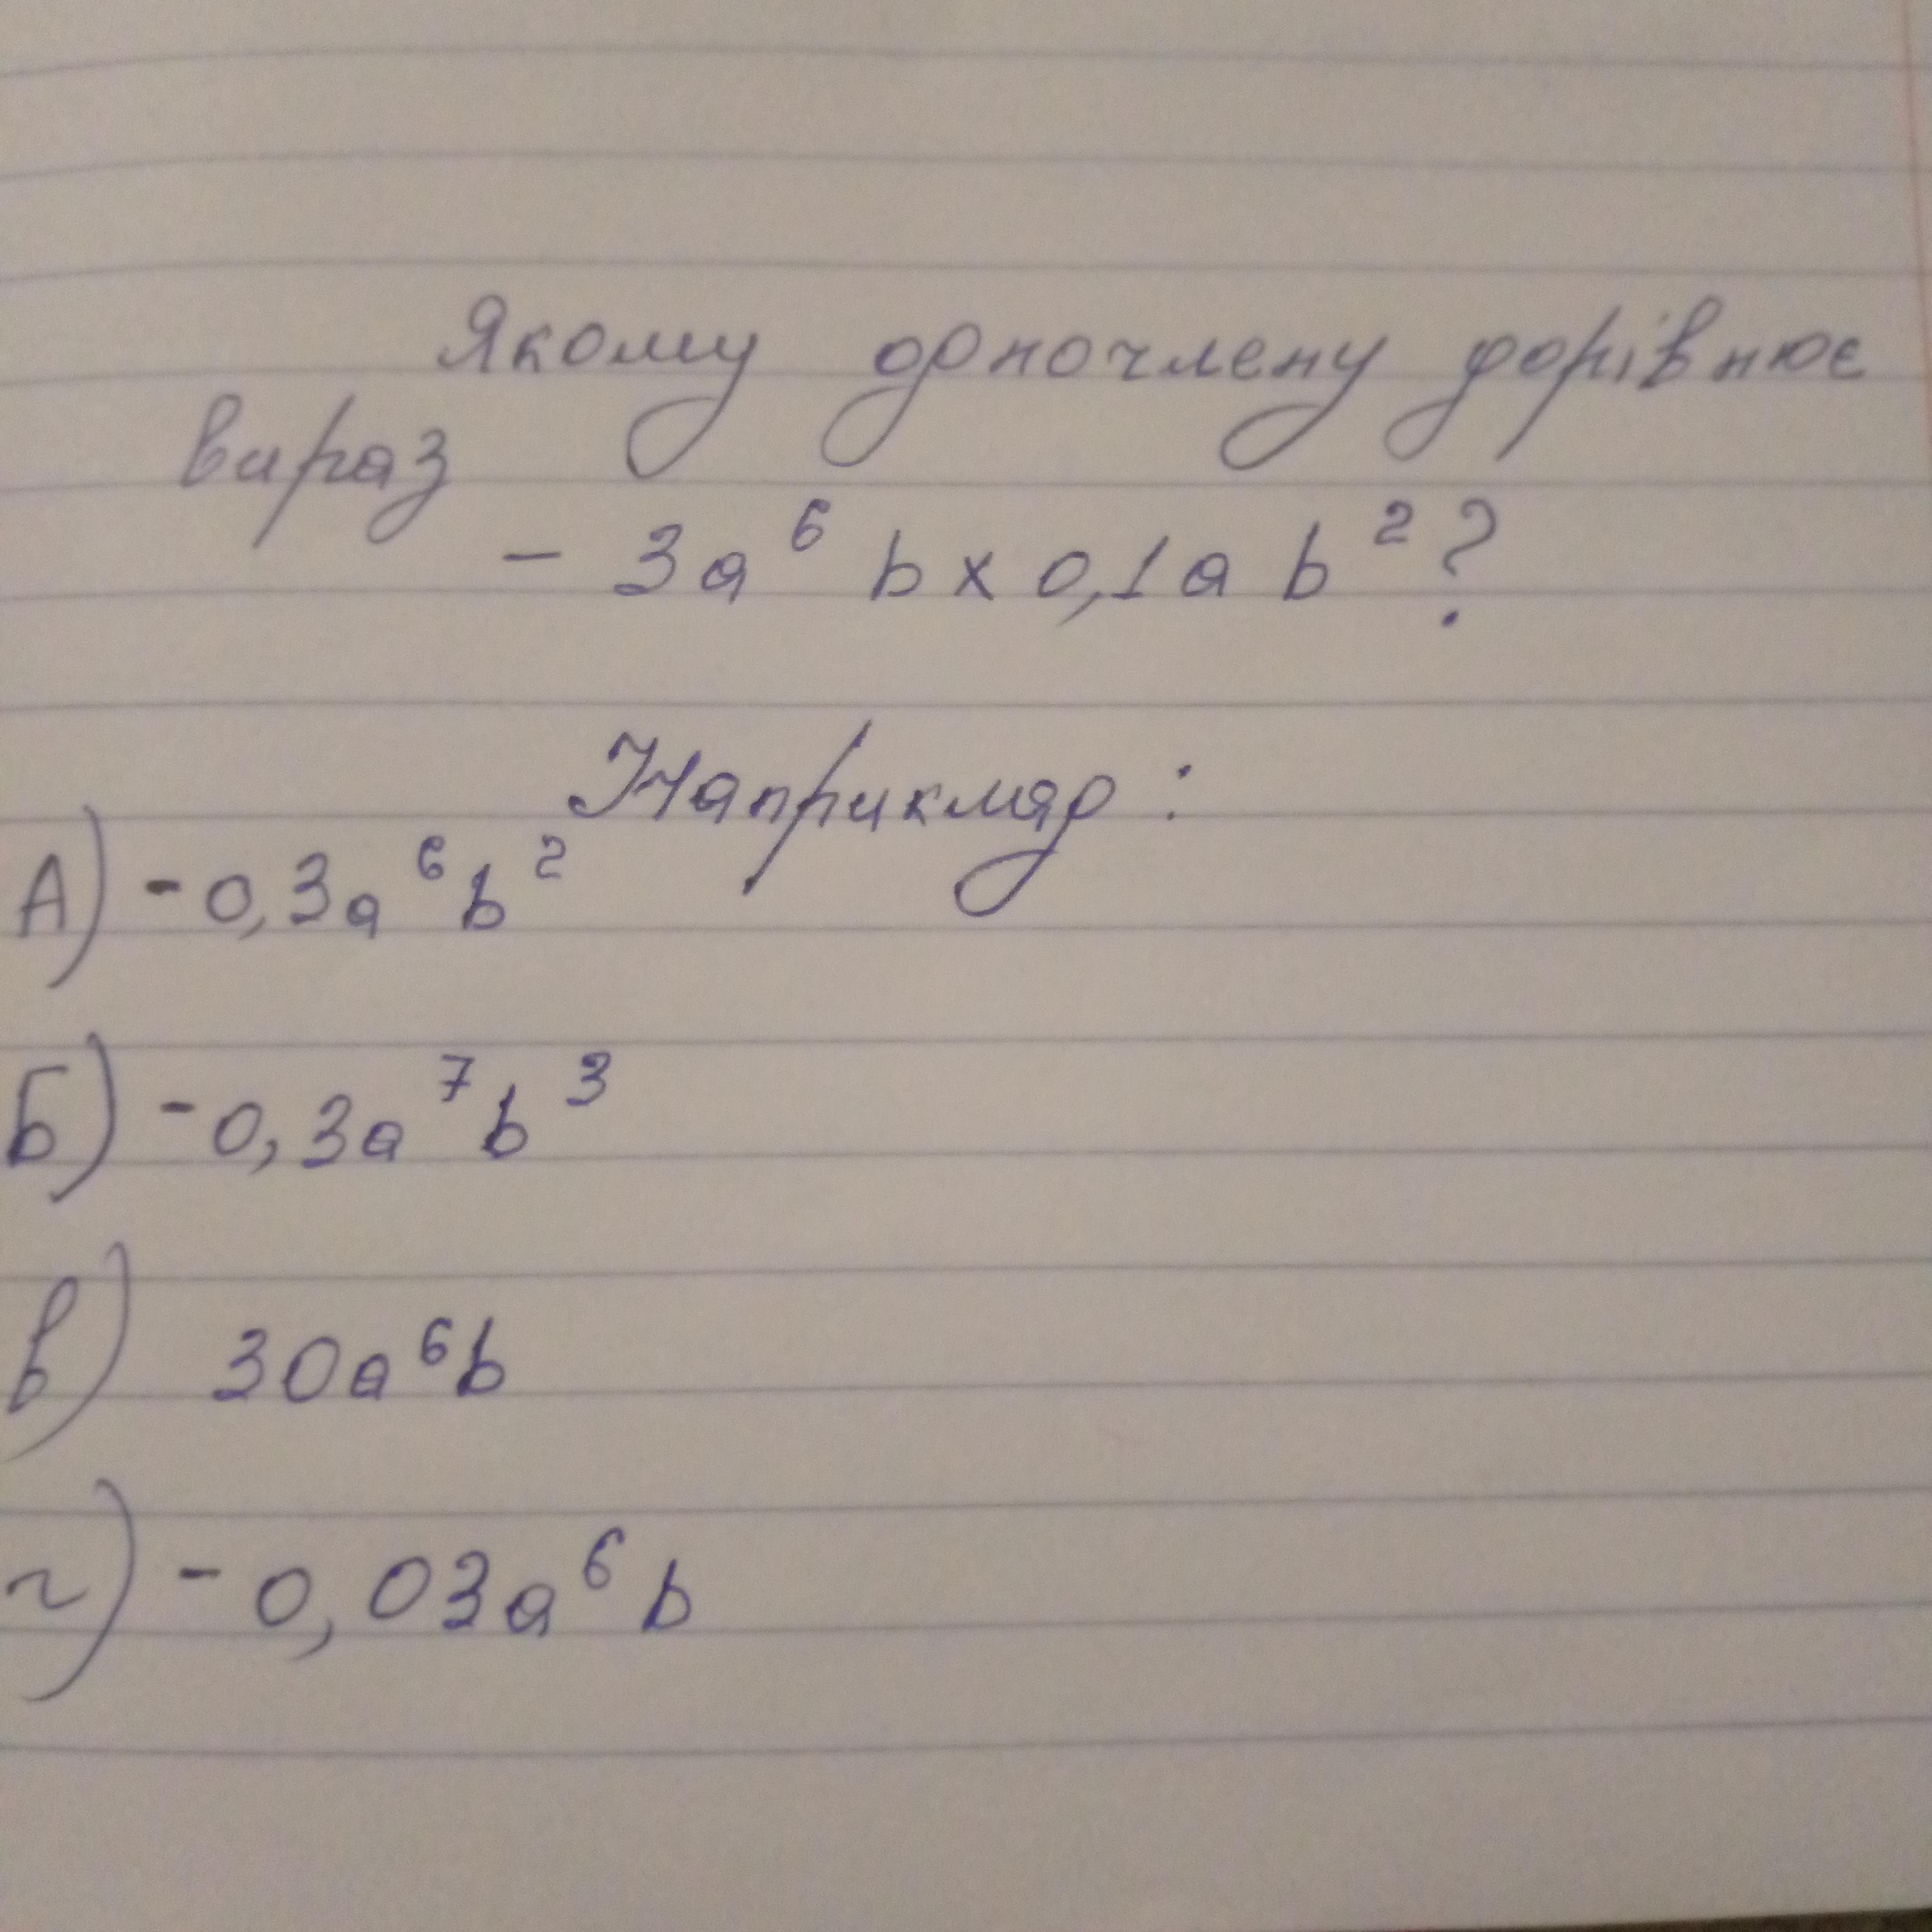 Якому одночлену дорівнює
вираз
- 3a⁶ b x 0,1a b²?
Наприклад:
А) -0,3a⁶b²
Б) -0,3a⁷b³
в) 30a⁶b
г) -0,03a⁶b